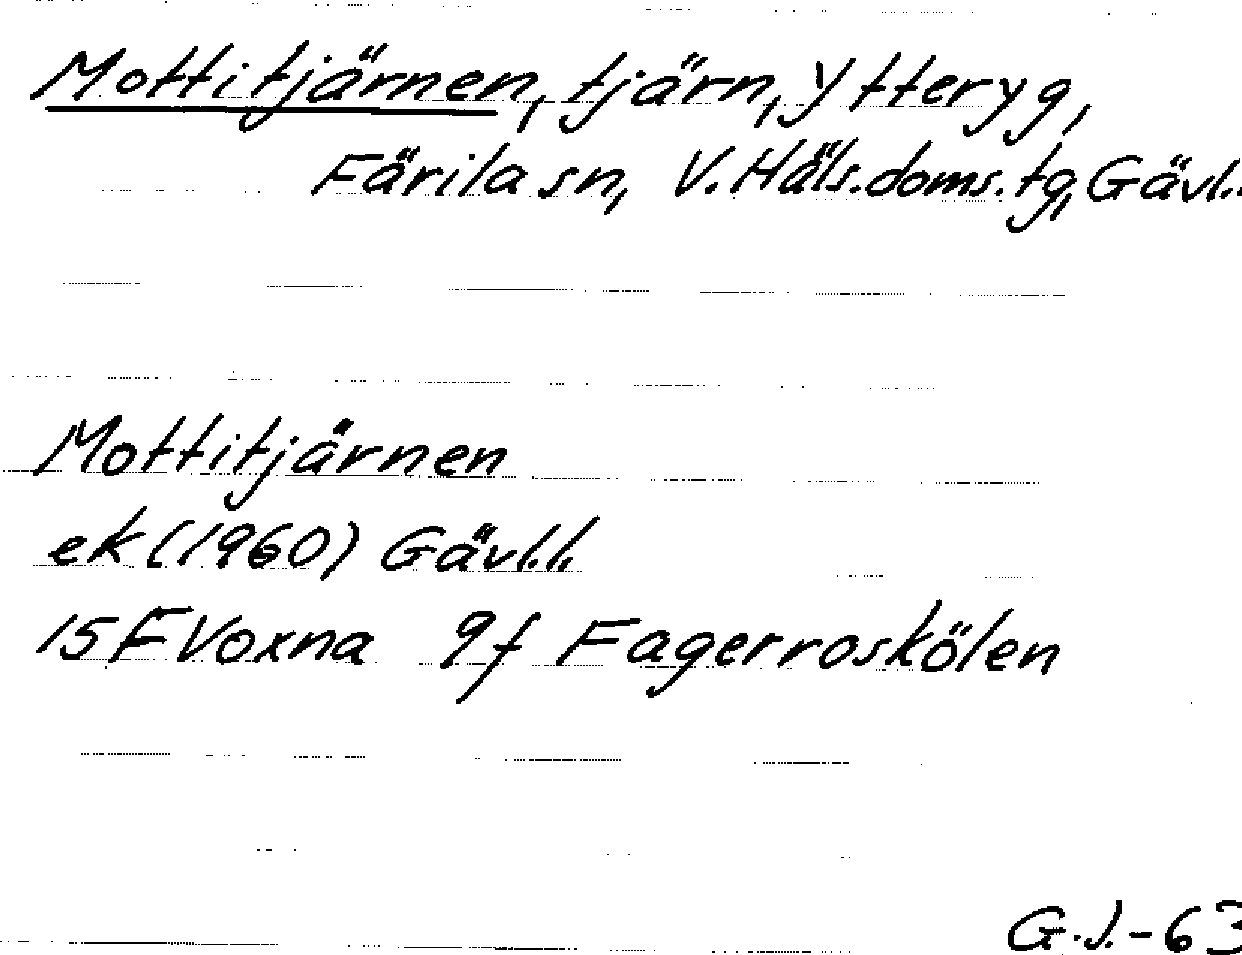 Mottitjärnen, tjärn, Ytteryg,
Färila sn, V. Häls. doms. tg, Gävl.
Mottitjärnen
ek (1960) Gävl.l.
15F Voxna 9f Fagerroskölen
G.J.-63